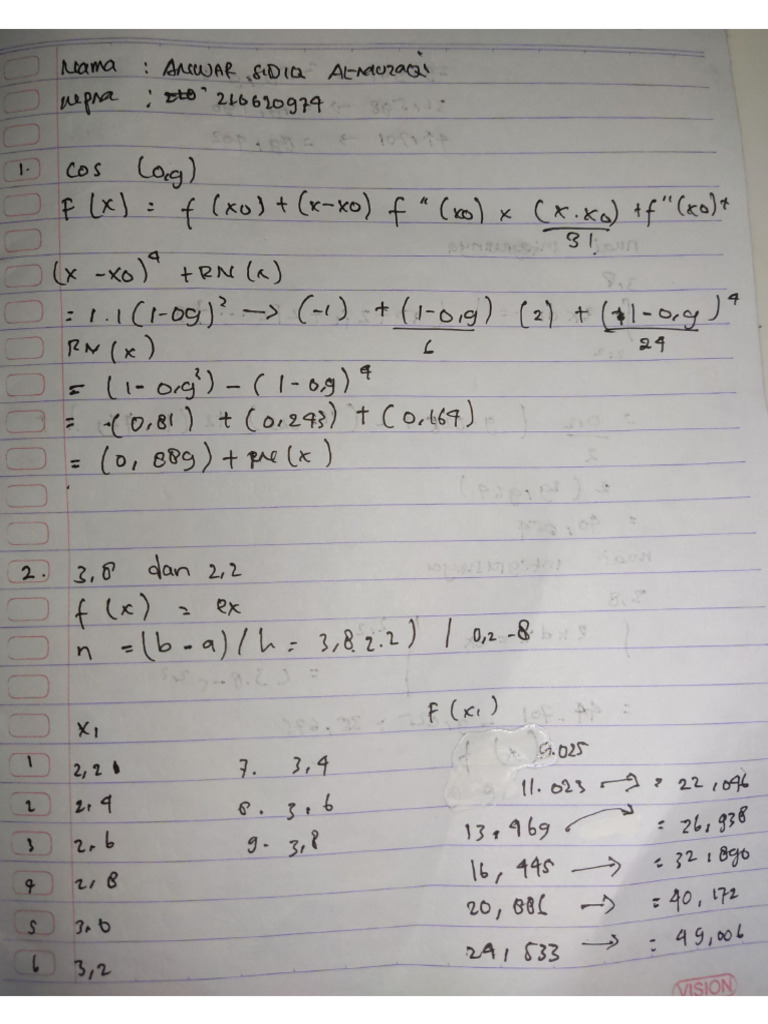 Nama : ANWAR SIDIQ AL-MUZAQI
: 216620974
1. cos (0,9)
F (x) = f (x0) + (x-x0) f "(x0) x (x.x0) + f"(x0)+
3!
(x - x0)⁴ + RN (x)
= 1.1 (1-09)² → (-1) + (1-0,9) (2) + (1-0,9)⁴
RN (x) 6 24
= (1-0,9²) - (1-0,9)⁴
= -(0,81) + (0,243) + (0,664)
= (0,889) + (x)
2. 3,8 dan 2,2
f (x) = ex
n = (b - a) / h = 3,8 2.2) / 0,2 - 8
x1 F (x1)
1 2,2 7. 3,4 9.025
2 2,4 8. 3,6 11.023 → = 22,046
3 2,6 9. 3,8 13,469 → = 26,938
4 2,8 16,445 → = 32,890
5 3,0 20,086 → = 40,172
6 3,2 24,533 → = 49,006
VISION